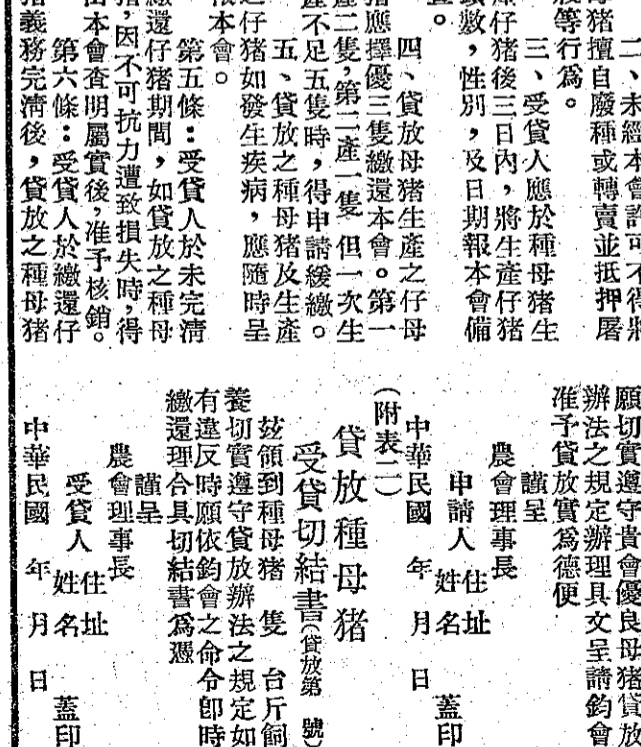 二、未經本會許可不得將
母猪擅自廢種或轉賣並抵押屠
殺等行爲。
三、受貸人應於種母猪生
產仔猪後三日內，將生產仔猪
頭數，性別，及日期報本會備
查。
四、貸放母猪生產之仔母
猪應擇優三隻繳還本會。第一
產二隻，第二產一隻 但一次生
產不足五隻時，得申請緩繳。
五、貸放之種母猪及生產
之仔猪如發生疾病，應隨時呈
報本會。
第五條：受貸人於未完清
繳還仔猪期間，如貸放之種母
猪，因不可抗力遭致損失時，得
由本會查明屬實後，准予核銷。
第六條：受貸人於繳還仔
猪義務完清後，貸放之種母猪
願切實遵守貴會優良母猪貸放
辦法之規定辦理具文呈請鈞會
准予貸放實爲德便
謹呈
農會理事長
申請人 住址
姓名 蓋印
中華民國 年 月 日
(附表二)
貸放種母猪
受貸切結書(貸放第 號)
茲領到種母猪 隻 台斤飼
養切實遵守貸放辦法之規定如
有違反時願依鈞會之命令卽時
繳還理合具切結書爲憑
謹呈
農會理事長
受貸人 住址
姓名 蓋印
中華民國 年 月 日